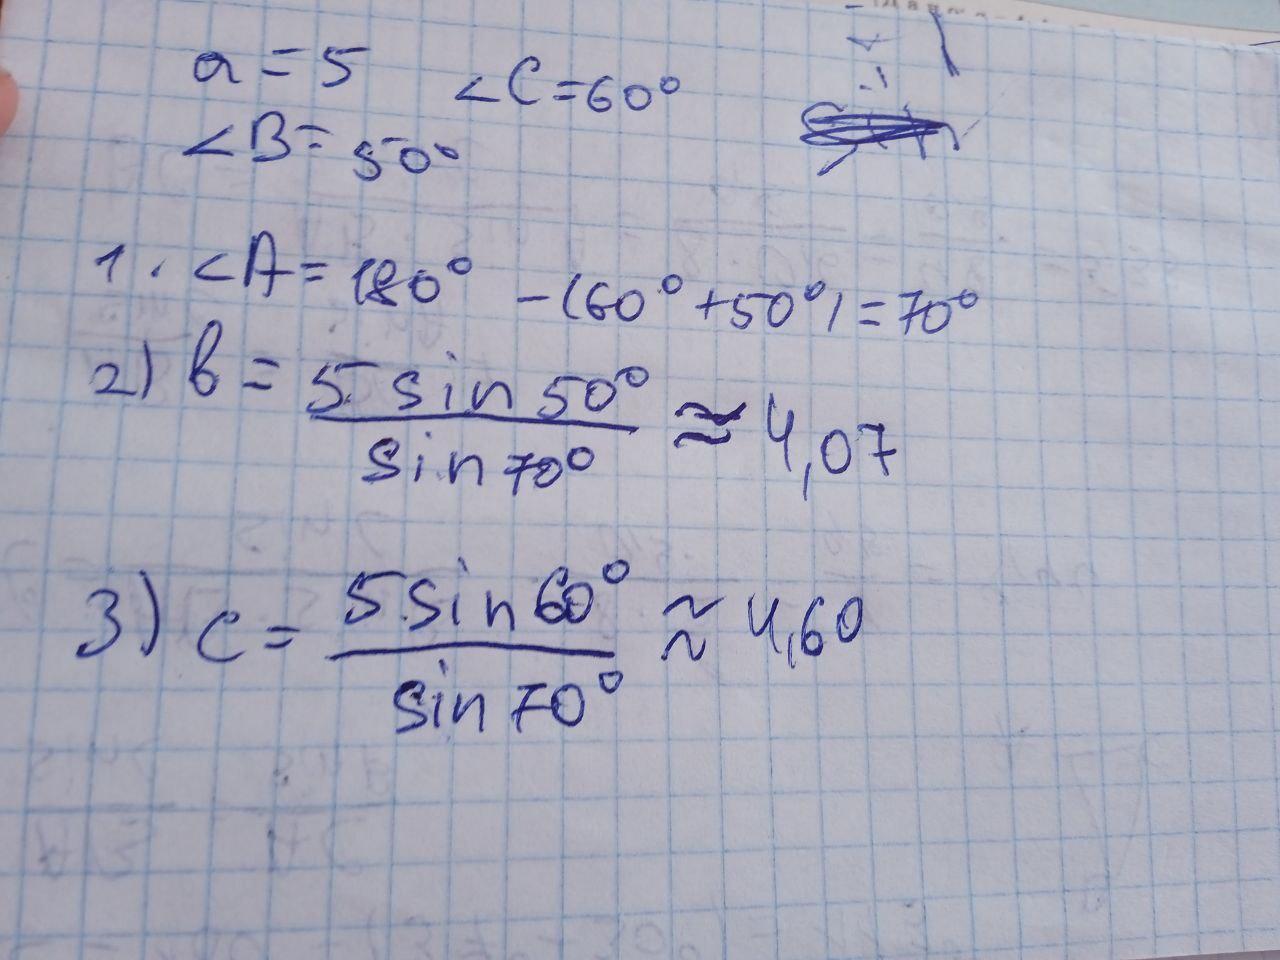 a = 5 ∠C = 60°
∠B = 50°
1. ∠A = 180° - (60° + 50°) = 70°
2) b = 5 sin 50° / sin 70° ≈ 4,07
3) c = 5 sin 60° / sin 70° ≈ 4,60